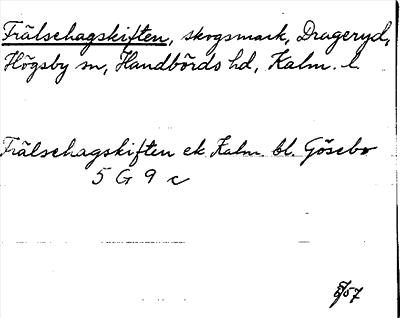 Frälsehagskiften, skogsmark, Drageryd,
Högsby sn, Handbörds hd, Kalm. l.
Frälsehagskiften ek Kalm. bl. Gösebo
5 G 9 c